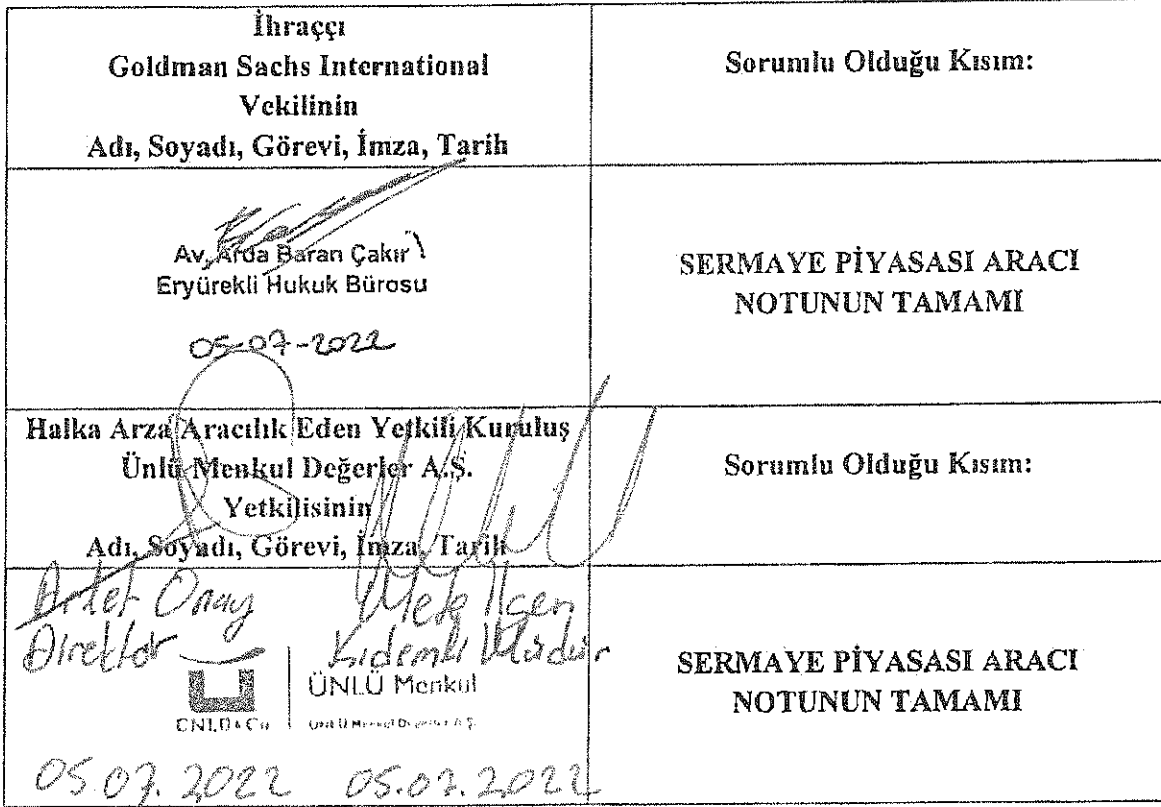 İhraççı
Goldman Sachs International
Vekilinin
Adı, Soyadı, Görevi, İmza, Tarih
Sorumlu Olduğu Kısım:
Av. Arda Baran Çakır
Eryürekli Hukuk Bürosu
05-07-2022
SERMAYE PİYASASI ARACI
NOTUNUN TAMAMI
Halka Arza Aracılık Eden Yetkili Kuruluş
Ünlü Menkul Değerler A.Ş.
Yetkilisinin
Adı, Soyadı, Görevi, İmza, Tarih
Sorumlu Olduğu Kısım:
Onay
Direktör
Mete
Kıdemli Müdür
ÜNLÜ Menkul
ÜNLÜ & Co
ÜNLÜ Menkul Değerler A.Ş.
05.07.2022 05.07.2022
SERMAYE PİYASASI ARACI
NOTUNUN TAMAMI